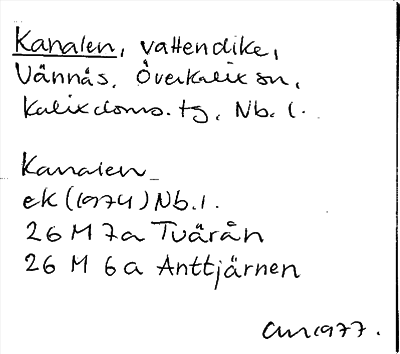 Kanalen, vattendike,
Vännäs, Överkalix sn,
Kalix doms. tg, Nb. l.
Kanalen
ek (1974) Nb. l.
26 M 7a Tvärån
26 M 6a Anttjärnen
1977.